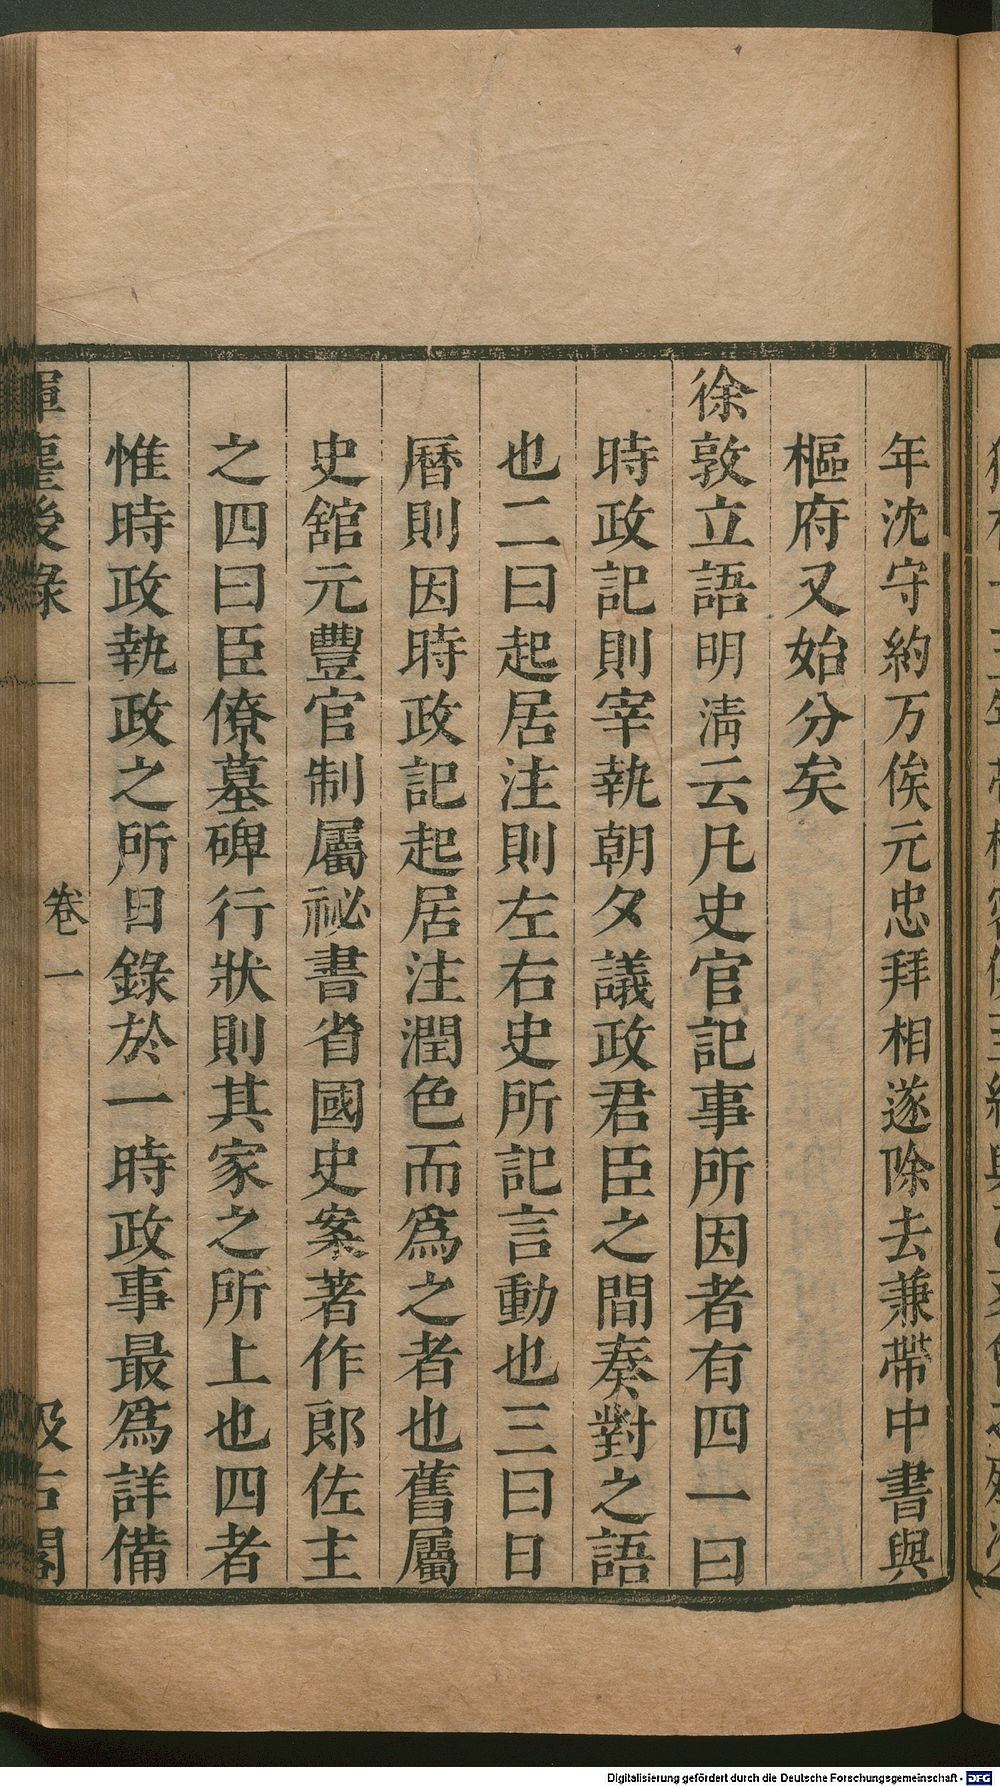 年沈守約万俟元忠拜相遂除去兼帶中書與
樞府又始分矣
徐敦立語明清云凡史官記事所因者有四一曰
時政記則宰執朝夕議政君臣之間奏對之語
也二曰起居注則左右史所記言動也三曰日
曆則因時政記起居注潤色而爲之者也舊屬
史舘元豐官制屬祕書省國史案著作郞佐主
之四曰臣僚墓碑行狀則其家之所上也四者
惟時政執政之所日錄於一時政事最爲詳備
揮麈後錄
卷一
汲古閣
Digitalisierung gefördert durch die Deutsche Forschungsgemeinschaft - DFG